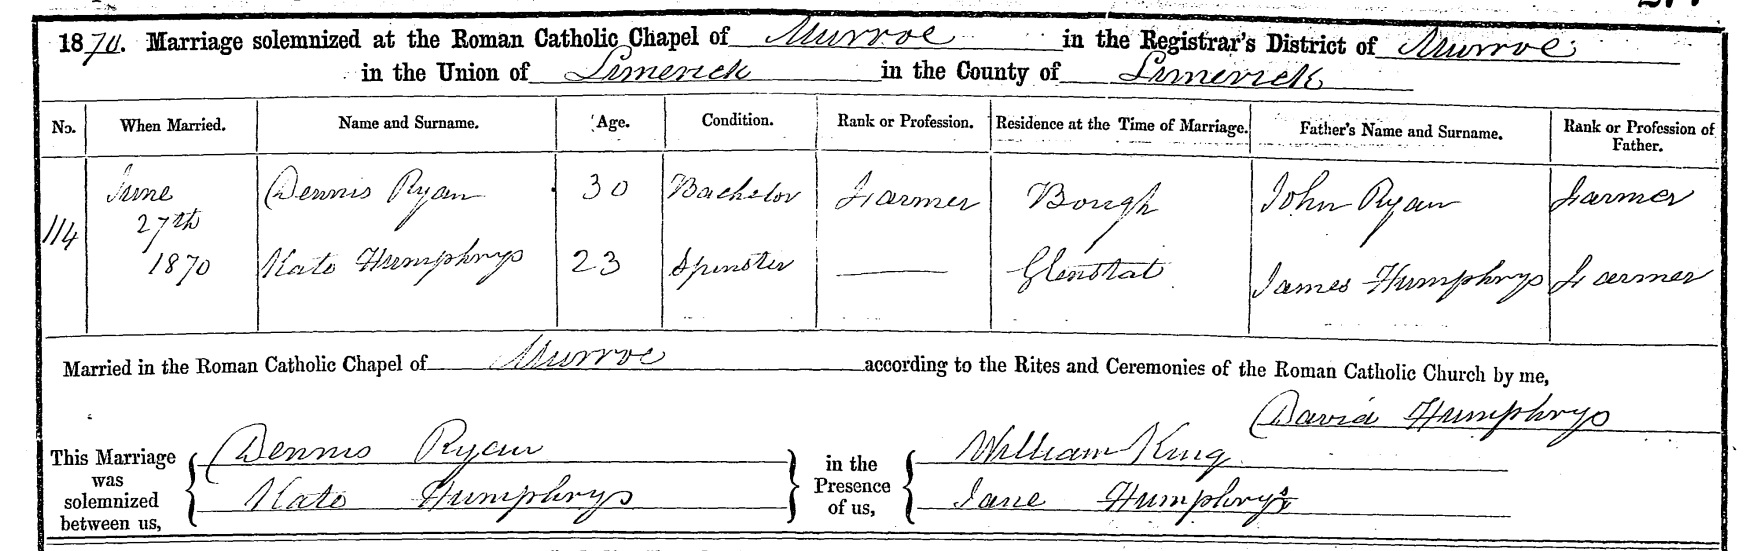 1870. Marriage solemnized at the Roman Catholic Chapel of Murroe in the Registrar's District of Murroe
in the Union of Limerick in the County of Limerick
No. When Married. Name and Surname. Age. Condition. Rank or Profession. Residence at the Time of Marriage. Father's Name and Surname. Rank or Profession of Father.
June Dennis Ryan 30 Bachelor Farmer Bough John Ryan Farmer
114 27th
1870 Kate Humphrys 23 Spinster Glenstal James Humphrys Farmer
Married in the Roman Catholic Chapel of Murroe according to the Rites and Ceremonies of the Roman Catholic Church by me,
David Humphrys
This Marriage was solemnized between us, Dennis Ryan in the Presence of us, William King
Kate Humphrys Jane Humphrys